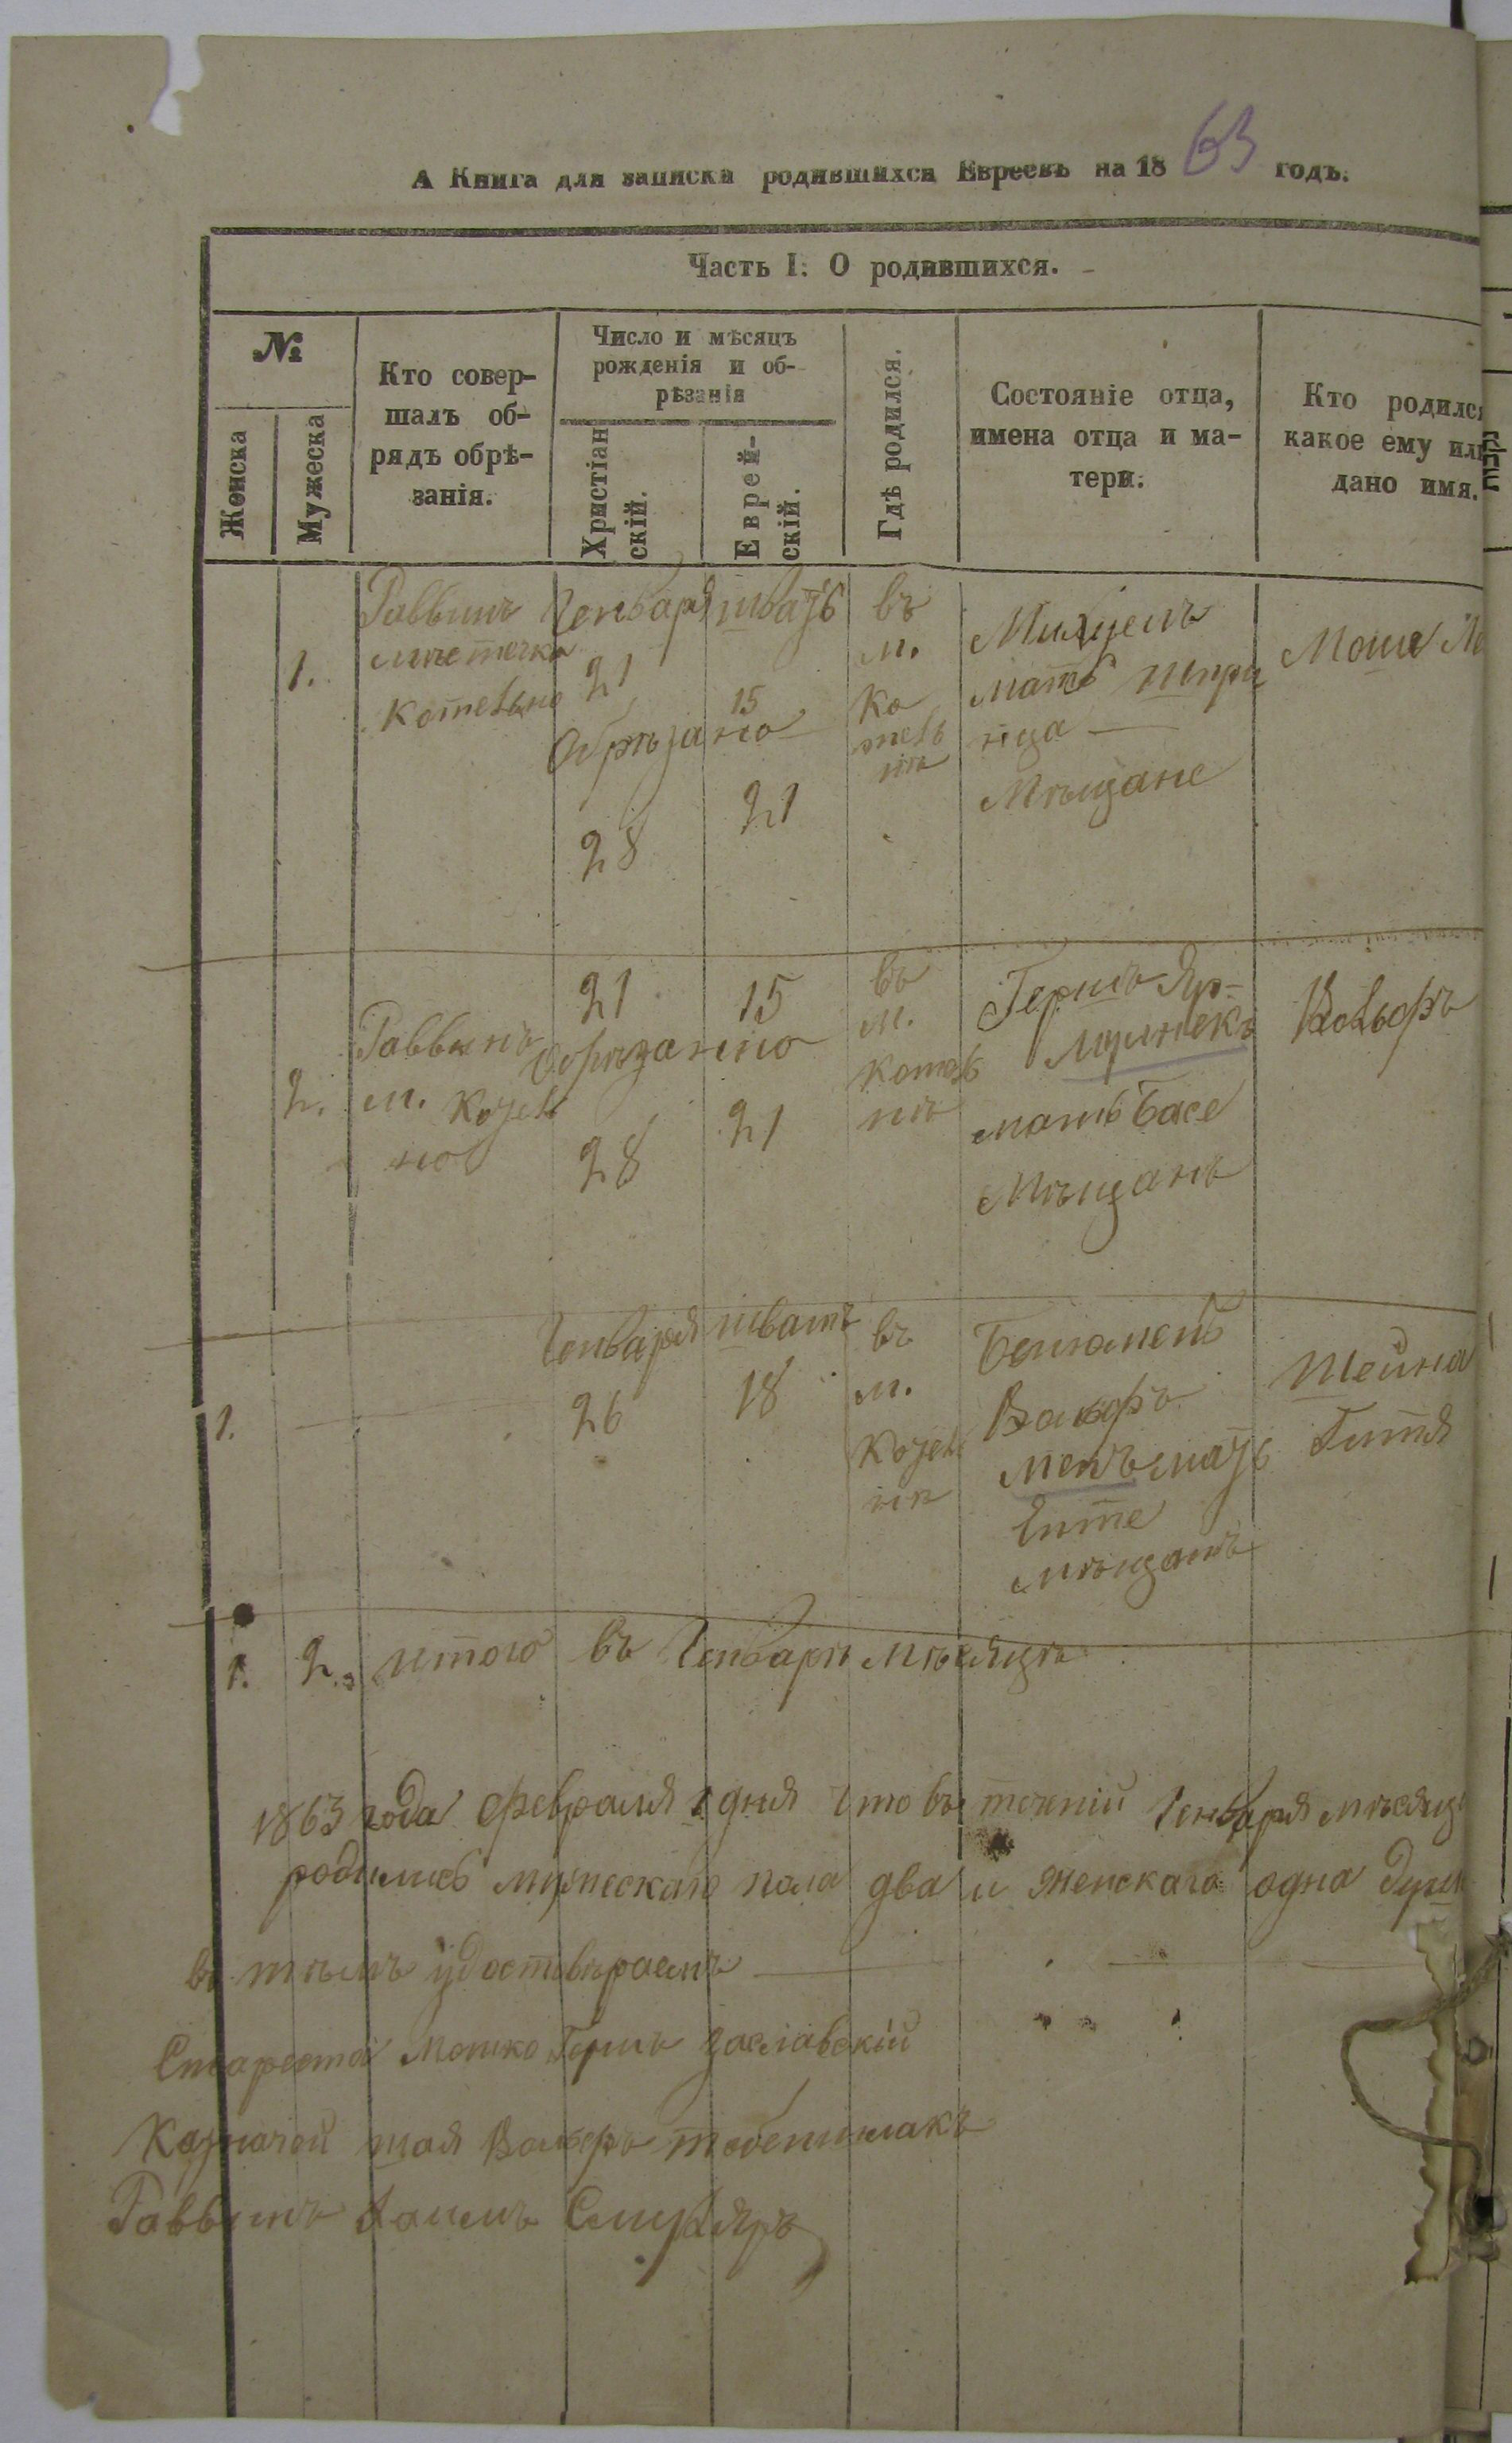 А Книга для записки родившихся Евреевъ на 1863 годъ.
Часть I. О родившихся.
№
Женска
Мужеска
Кто совер-
шалъ об-
рядъ обрѣ-
занія.
Число и мѣсяцъ
рожденія и об-
рѣзанія
Христіан
скій.
Еврей-
скій.
Гдѣ родился.
Состояніе отца,
имена отца и ма-
тери.
Кто родился
какое ему или
дано имя.
1.
Раввинъ
мѣстечка
Генваря
21
Обрѣзано
28
шватъ
15
21
въ
м.
Мать
Мѣщане
Моше
2.
Раввинъ
м.
но
21
Обрѣзанно
28
15
21
въ
м.
Гершъ Яр-
мать Басе
Мѣщанъ
Вольфъ
1.
Генваря
26
шватъ
18
въ
м.
Вольфъ
мать
Енте
мѣщанъ
Шейна
Гитя
1. 2. итого въ Генварѣ мѣсяцѣ
1863 года февраля 1 дня что въ теченій Генваря мѣсяца
родилисъ мужескаго пола два и женскаго одна душ
въ тѣмъ удостовѣраемъ
Староста Мошко Гершъ Заславскій
Казначей шая Волфъ
Раввинъ